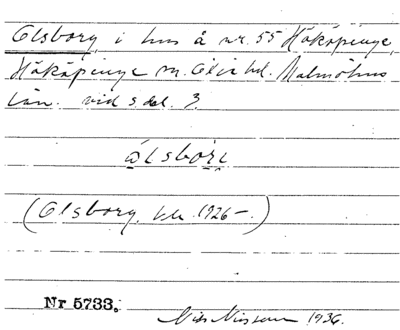 Elsborg i hus å nr. 55 Håköpinge,
Håköpinge sn. Oxie hd. Malmöhus
län. vid s. del. 3.
älsbårj
(Elsborg kk. 1926–)
Nr 5733.
Nils Nilsson 1936.